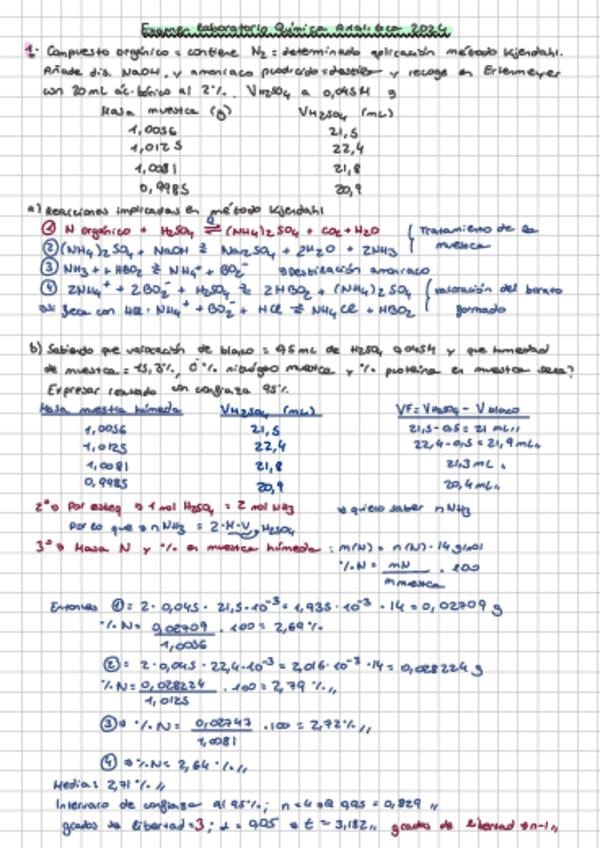 Examen laboratorio Química Analítica 2024
1. Compuesto orgánico = contiene N2 = determinado aplicación método Kjendahl.
Añade dis. NaOH, y amoniaco producido = destila y recoge en Erlenmeyer
con 20 mL ác. bórico al 2%. VH2SO4 a 0,045M
Masa muestra (g) VH2SO4 (mL)
1,0056 21,5
1,0125 22,4
1,0081 21,8
0,9985 20,9
a) Reacciones implicadas en método Kjendahl
① N orgánico + H2SO4 ⇌ (NH4)2SO4 + CO2 + H2O Tratamiento de la
② (NH4)2SO4 + NaOH ⇌ Na2SO4 + 2H2O + 2NH3 muestra
③ NH3 + HBO2 ⇌ NH4+ + BO2- destilación amoniaco
④ 2NH4+ + 2BO2- + H2SO4 ⇌ 2HBO2 + (NH4)2SO4 valoración del borato
con HCl: NH4+ + BO2- + HCl ⇌ NH4Cl + HBO2 formado
b) Sabiendo que valoración de blanco = 0,5 mL de H2SO4 0,045M y que humedad
de muestra = 15,3%, ¿% nitrógeno muestra y % proteína en muestra seca?
Expresar resultado con confianza 95%
Masa muestra húmeda VH2SO4 (mL) VF = VH2SO4 - Vblanco
1,0056 21,5 21,5 - 0,5 = 21 mL
1,0125 22,4 22,4 - 0,5 = 21,9 mL
1,0081 21,8 21,3 mL
0,9985 20,9 20,4 mL
2º Por esteq 1 mol H2SO4 = 2 mol NH3 quiero saber n NH3
Por lo que n NH3 = 2·M·V H2SO4
3º Masa N y % en muestra húmeda : m(N) = n(N) · 14 g/mol
% N = mN / mmuestra · 100
Entonces ① = 2 · 0,045 · 21,5·10^-3 = 1,935·10^-3 · 14 = 0,02709 g
% N = 0,02709 / 1,0056 · 100 = 2,69%
② = 2 · 0,045 · 22,4·10^-3 = 2,016·10^-3 · 14 = 0,028224 g
% N = 0,028224 / 1,0125 · 100 = 2,79%
③ % N = 0,02747 / 1,0081 · 100 = 2,72%
④ % N = 2,64%
Media: 2,71%
Intervalo de confianza al 95%; n = 4 0,95 = 0,829
grados de libertad = 3; α = 0,05 t = 3,182 grados de libertad n-1